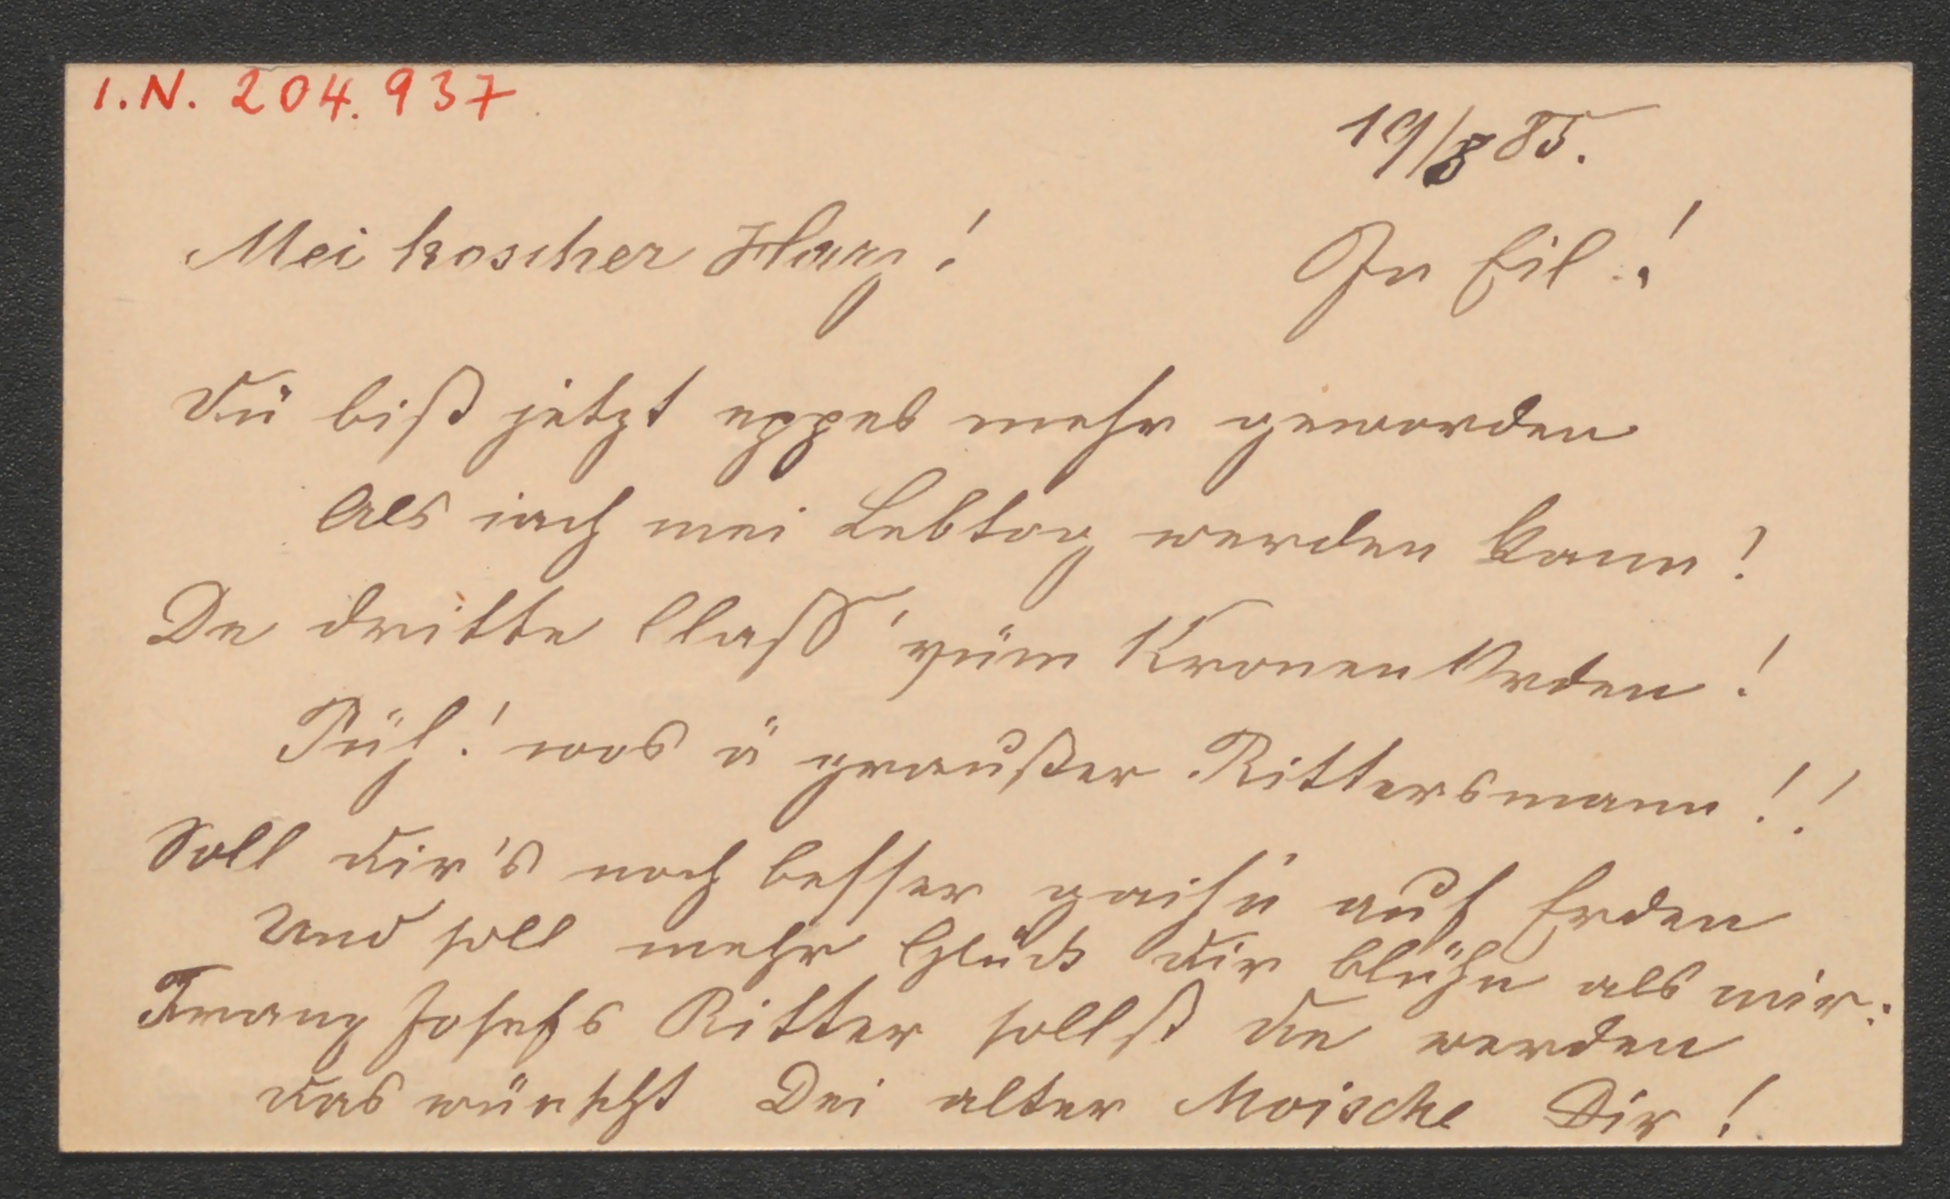 I.N. 204.937
19/8 85.
Mei koscher Harz!
In Eil!
Du biß jetzt eppes mehr geworden
Als iach mei Lebtog werden kann!
De dritte Class' vum Kronen Orden!
Püh! wos ä graußer Rittersmann!!
Soll dir's noch besser gaihn auf Erden
Und soll mehr Glück dir blühn als mir:
Franz Josefs Ritter sollst de werden
das wünscht Dei alter Moische Dir!